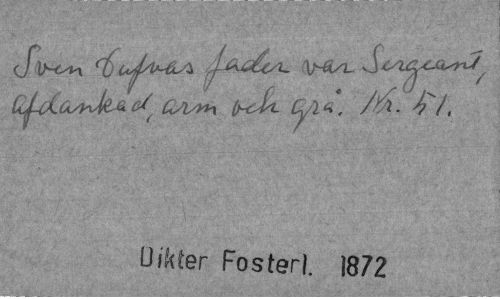 Sven Dufvas fader var Sergeant,
afdankad, arm och grå. Nr. 51.
Dikter Fosterl. 1872